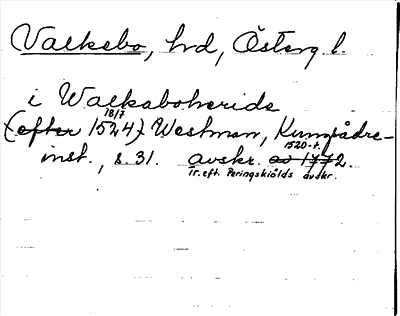 Valkebo, hrd, Österg l.
i Walkaboheride
18/7
(efter 1524) Westman, Kungsådre-
1520-t.
inst., s. 31. avskr. av 1772.
ir. eft. Peringskiölds avskr.